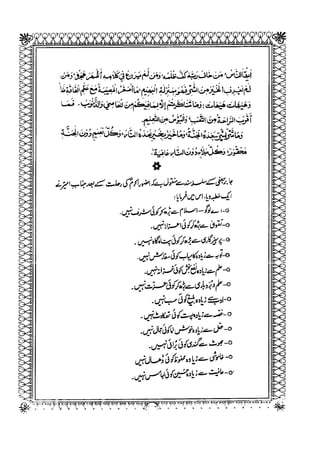 أيها الناس من خاف ربه كف ظلمه ومن لم يرع في كلامه أظهر فخره ومن
لم يعرف الخير من الشر فهو بمنزلة البهيم ما أصغر المصيبة مع عظم الفاقة غداً
هيهات هيهات وما تناكرتم إلا لما فيكم من المعاصي والذنوب فما
أقرب الراحة من التعب والبؤس من النعيم
وما شر بشر بعده الجنة وما خير بخير بعده النار وكل نعيم دون الجنة
محقور وكل بلاء دون النار عافية
جابر جعفی کے سلسلۂ سند سے منقول ہے کہ حضور اکرم کی رحلت کے بعد جناب امیر نے
خطبہ دیا، اس میں فرمایا:
۔ اے لوگو - اسلام سے بڑھ کر کوئی شرف نہیں۔
۔ تقویٰ سے بڑھ کر کوئی
۔ پرہیزگاری سے بڑھ کر کوئی پناہ گاہ نہیں۔
۔ توبہ سے زیادہ کامیاب کوئی سفارش نہیں۔
۔ علم سے زیادہ نفع بخش کوئی خزانہ نہیں۔
۔ حلم و بردباری سے بڑھ کر کوئی عزت نہیں۔
۔ ادب سے زیادہ بلیغ کوئی حسب نہیں۔
۔ غصہ سے زیادہ پست کوئی نہیں۔
۔ عقل سے زیادہ خوش نما کوئی جمال نہیں۔
۔ جھوٹ سے گندی کوئی برائی نہیں۔
۔ خاموشی سے زیادہ محفوظ کوئی ڈھال نہیں
۔ عافیت سے زیادہ حسین کوئی لباس نہیں۔